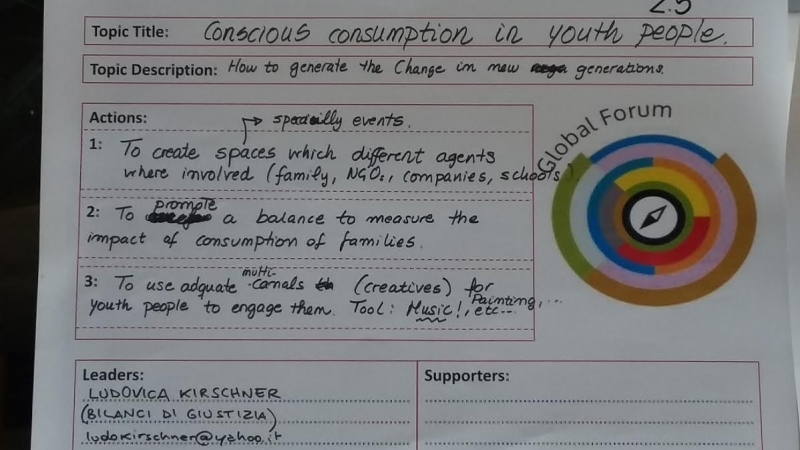 2.5
Topic Title: Conscious consumption in youth people.
Topic Description: How to generate the Change in new generations.
Global Forum
Actions:
specially events.
1: To create spaces which different agents
where involved (family, NGOs, companies, schools)
promote
2: To a balance to measure the
impact of consumption of families.
multi-
3: To use adquate canals (creatives) for
youth people to engage them. Tool: Music!, Painting, ...
etc...
Leaders:
LUDOVICA KIRSCHNER
(BILANCI DI GIUSTIZIA)
ludokirschner@yahoo.it
Supporters: